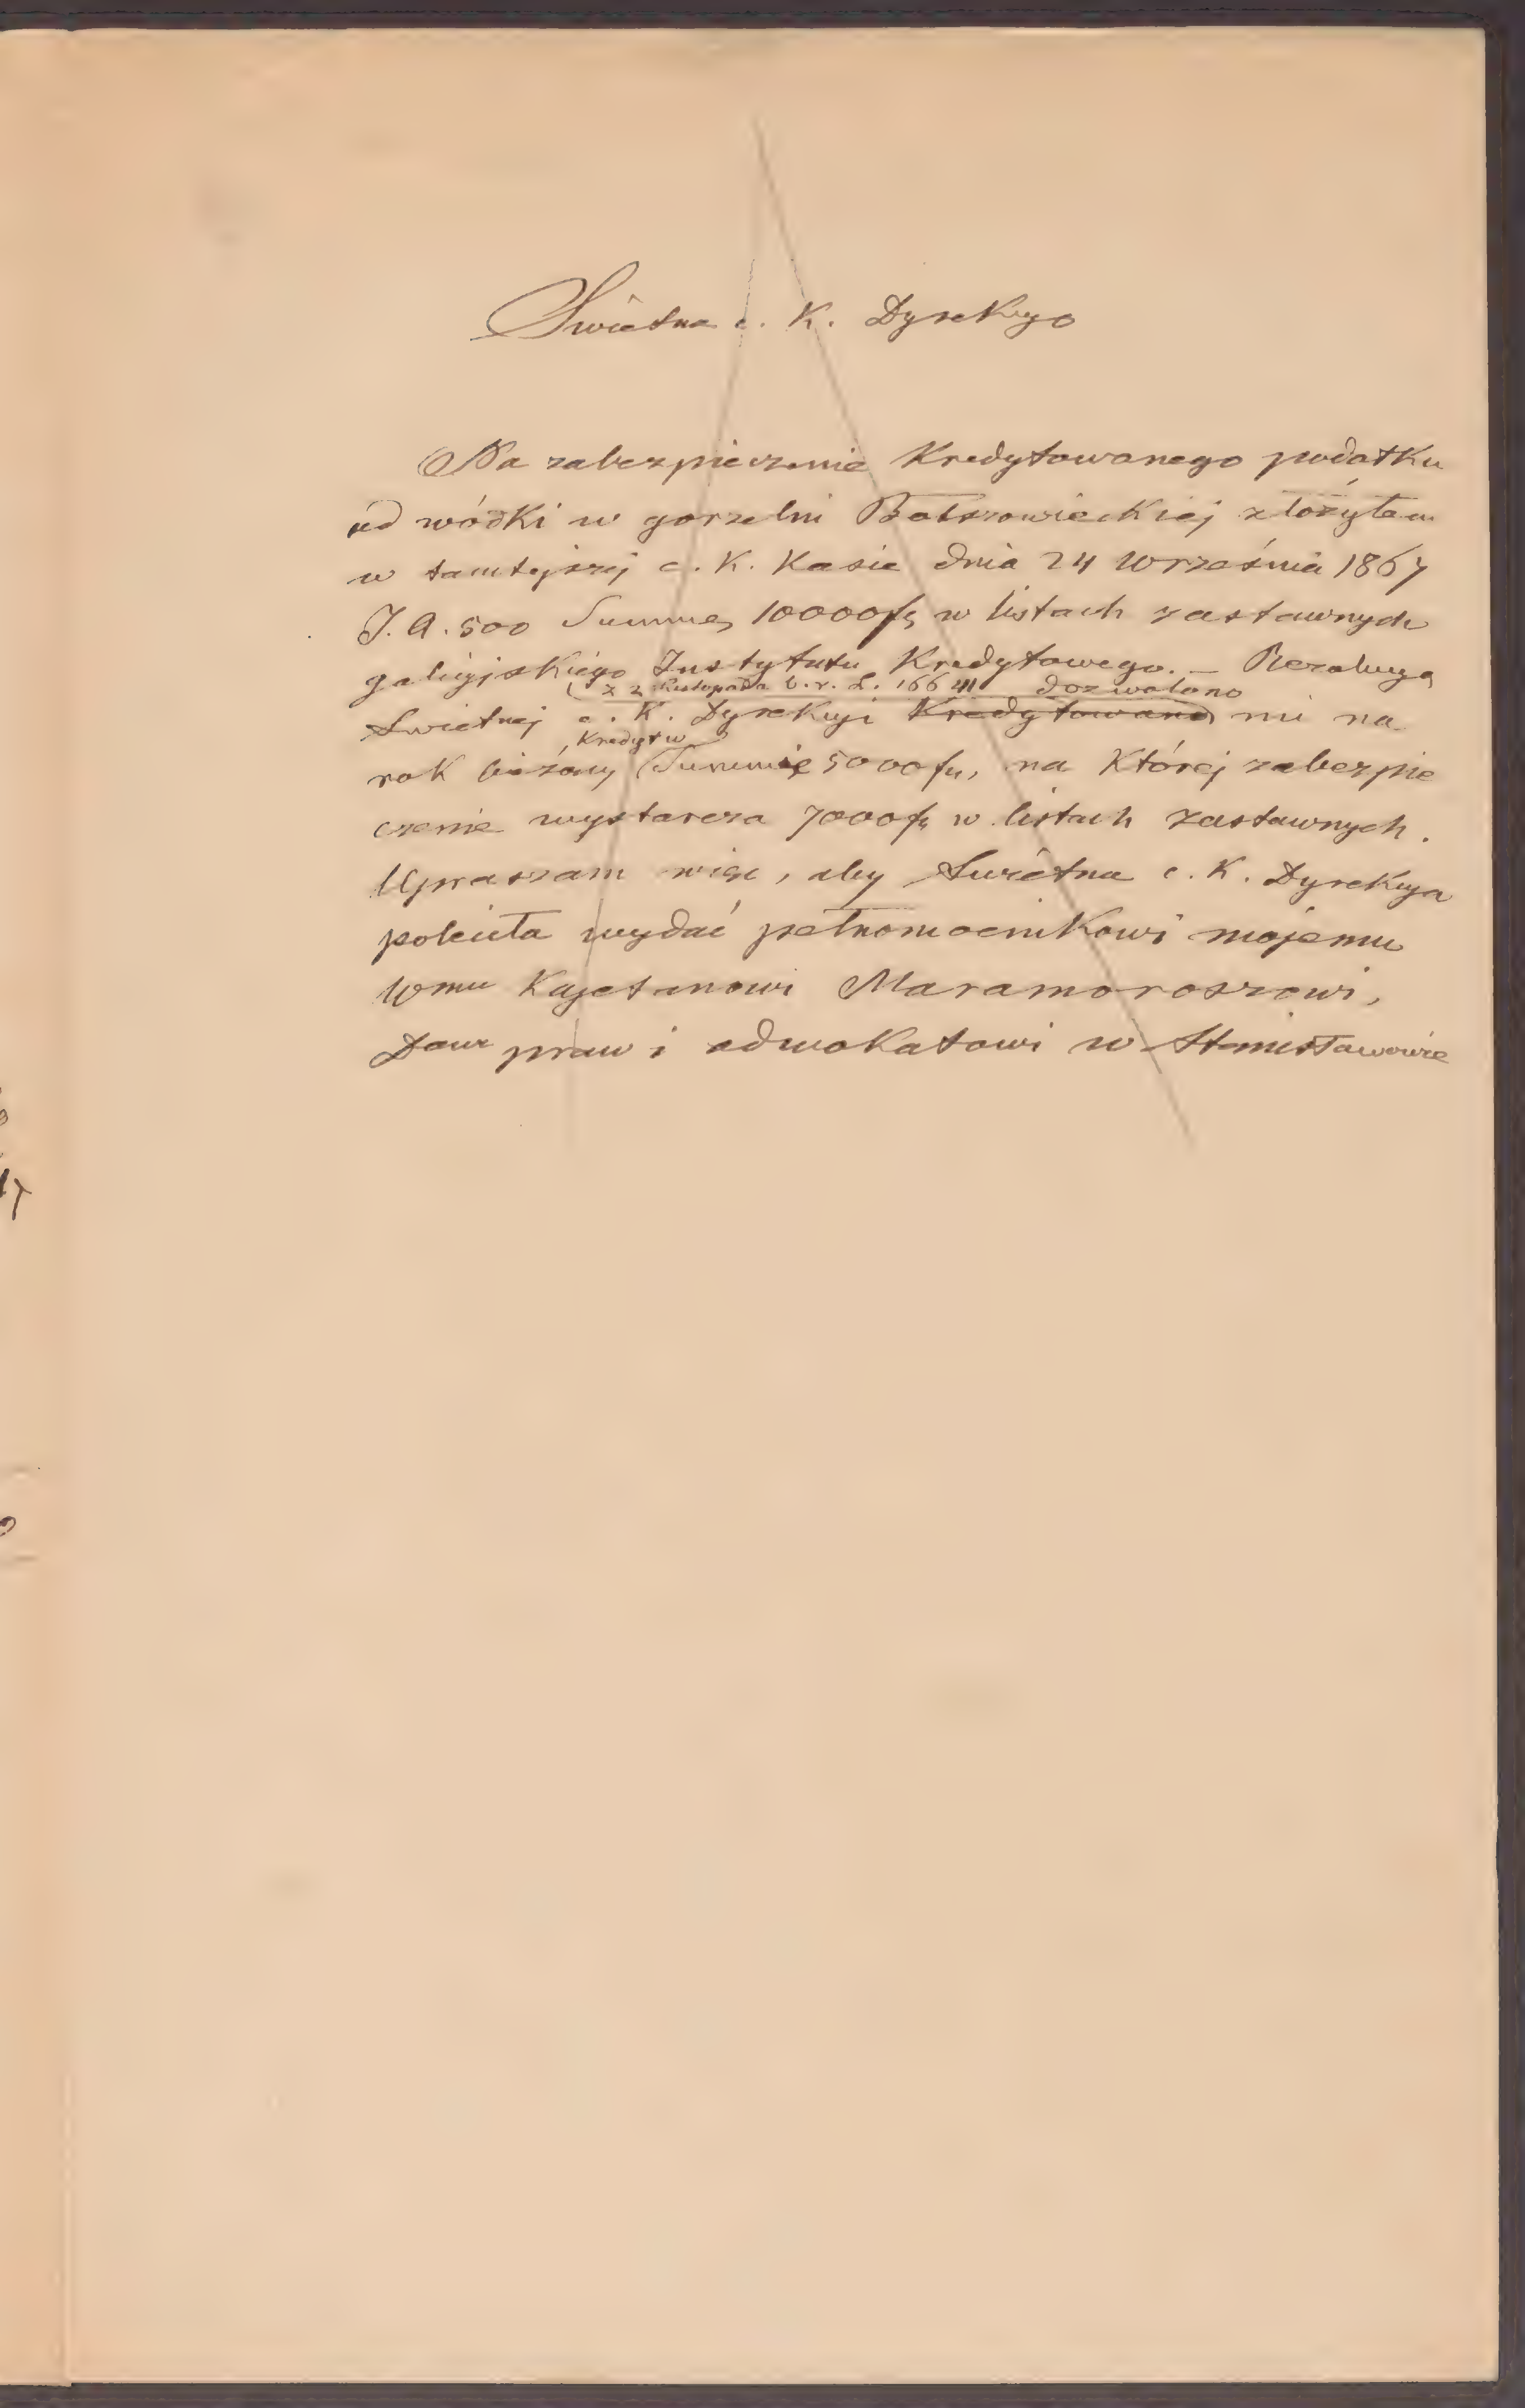 Świetna c. K. Dyrekcyo
Na zabezpieczenie Kredytowanego podatku
od wódki w gorzelni Bołszowieckiej złożyłem
w tamtejszej c. K. Kasie dnia 24 Września 1867
J. A. 500 Summę 10000 fl w listach zastawnych
galicyjskiego Instytutu Kredytowego. – Rezolucyą
z 2 Listopada b. r. L. 16641 dozwolono
Swietnej c. K. Dyrekcyi Kredytowano mi na
Kredyt w
rok bieżący Summie 5000 fl, na Której zabezpie
czenie wystarcza 7000 fl w listach zastawnych.
Upraszam więc, aby Swietna c. K. Dyrekcya
poleciła wydać pełnomocnikowi mojemu
Wmu Kajetanowi Maramoroszowi,
praw i adwokatowi w Stanisławowie